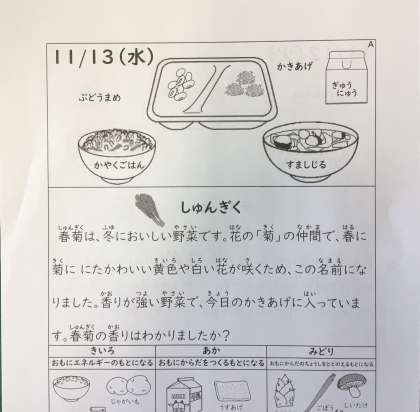 11/13(水)
A
かきあげ
ぶどうまめ
ぎゅう
にゅう
かやくごはん
すましじる
しゅんぎく
春菊は、冬においしい野菜です。花の「菊」の仲間で、春に
菊に にたかわいい黄色や白い花が咲くため、この名前にな
りました。香りが強い野菜で、今日のかきあげに入っていま
す。春菊の香りはわかりましたか？
きいろ
あか
みどり
おもにエネルギーのもとになる
おもにからだをつくるもとになる
おもにからだのちょうしをととのえるもとになる
じゃがいも
うすあげ
ごぼう
しいたけ